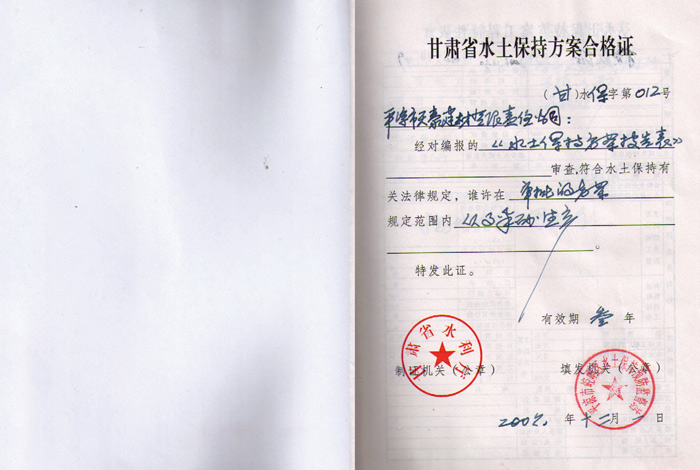 甘肃省水土保持方案合格证
(甘)水保字第012号
平凉市天嘉建材有限责任公司：
经对编报的《水土保持方案报告表》
审查,符合水土保持有
关法律规定，谁许在 审批的方案
规定范围内 以及采砂生产
。
特发此证。
有效期 叁 年
甘肃省水利厅
制证机关(公章)
填发机关(公章)
年十二月一日